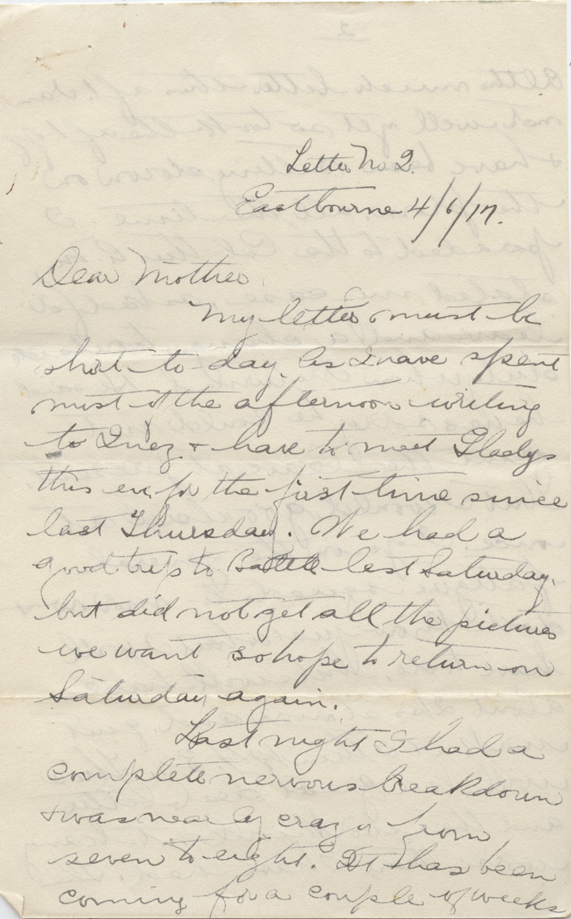 Letter No 2.
Eastbourne 4/6/17.
Dear Mother
My letter must be
short to-day. As I have spent
most of the afternoon writing
to Inez + have to meet Gladys
this eve for the first time since
last Thursday. We had a
good trip to Battle last Saturday.
but did not get all the pictures
we want so hope to return on
Saturday again.
Last night I had a
complete nervous breakdown
+ was nearly crazy from
seven to eight. It has been
coming for a couple of weeks